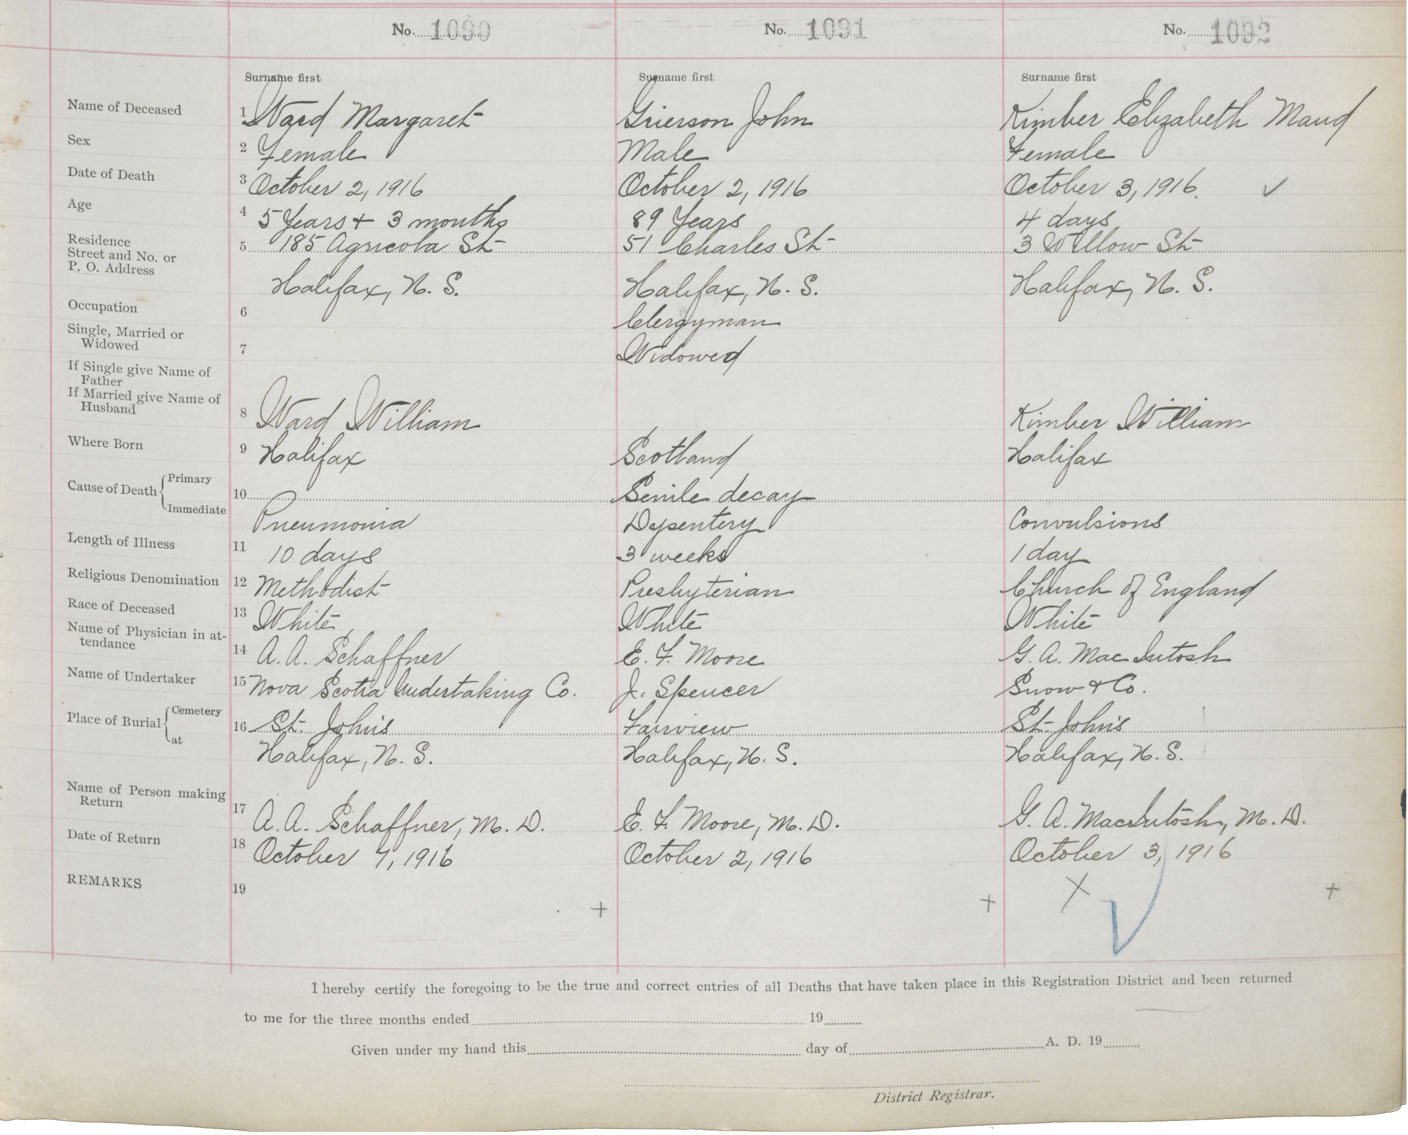 No. 1090 No. 1091 No. 1092
Surname first Surname first Surname first
Name of Deceased 1 Ward Margaret Grierson John Kimber Elizabeth Maud
Sex 2 Female Male Female
Date of Death 3 October 2, 1916 October 2, 1916 October 3, 1916.
Age 4 5 Years + 3 months 89 Years 4 days
Residence
Street and No. or 5 185 Agricola St 51 Charles St 3 Willow St
P. O. Address Halifax, N. S. Halifax, N. S. Halifax, N. S.
Occupation 6 Clergyman
Single, Married or
Widowed 7 Widowed
If Single give Name of
Father
If Married give Name of
Husband 8 Ward William Kimber William
Where Born 9 Halifax Scotland Halifax
Cause of Death Primary 10 Senile decay
Immediate Pneumonia Dysentery Convulsions
Length of Illness 11 10 days 3 weeks 1 day
Religious Denomination 12 Methodist Presbyterian Church of England
Race of Deceased 13 White White White
Name of Physician in at-
tendance 14 A. A. Schaffner E. F. Moore G. A. MacIntosh
Name of Undertaker 15 Nova Scotia Undertaking Co. J. Spencer Snow & Co.
Place of Burial Cemetery 16 St. John's Fairview St. John's
at Halifax, N. S. Halifax, N. S. Halifax, N. S.
Name of Person making
Return 17 A. A. Schaffner, M. D. E. F. Moore, M. D. G. A. MacIntosh, M. D.
Date of Return 18 October 7, 1916 October 2, 1916 October 3, 1916
REMARKS 19
I hereby certify the foregoing to be the true and correct entries of all Deaths that have taken place in this Registration District and been returned
to me for the three months ended 19
Given under my hand this day of A. D. 19
District Registrar.